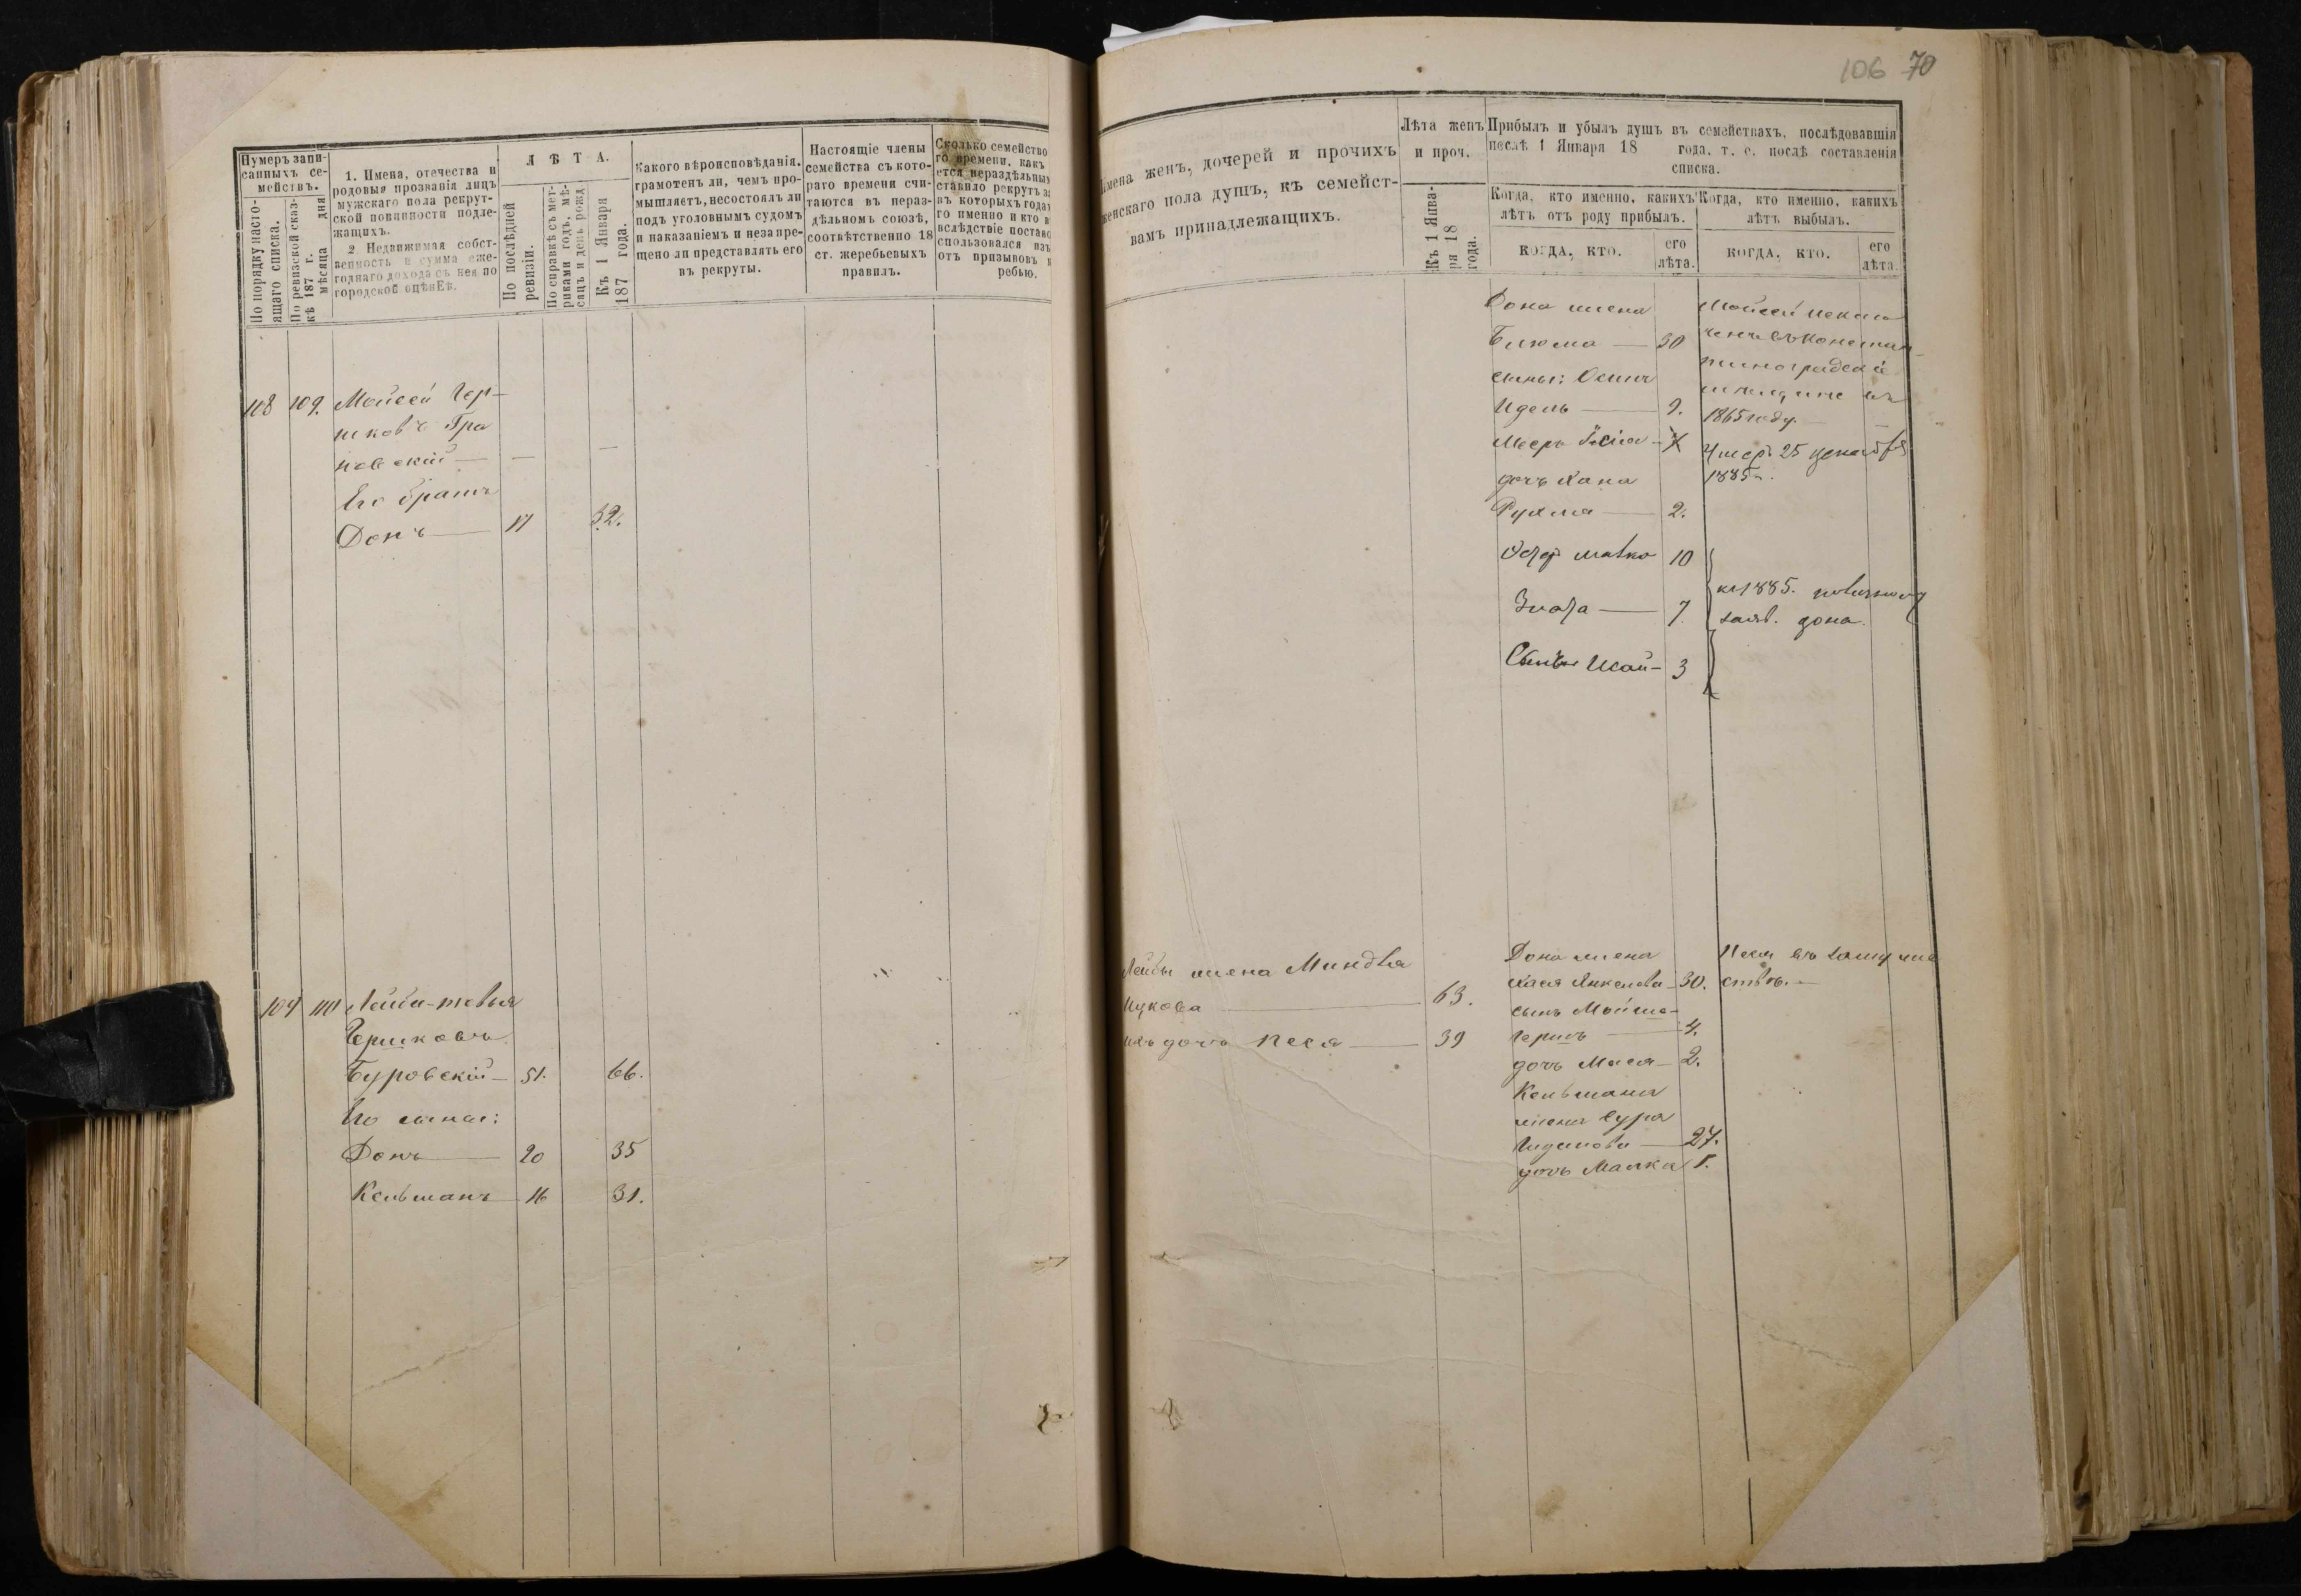 106 70
Нумеръ запи-
санныхъ се-
мействъ.
По порядку насто-
ящаго списка.
По ревизской сказ-
кѣ 187 г.
мѣсяца дня
1. Имена, отечества и
родовыя прозванія лицъ
мужскаго пола рекрут-
ской повинности подле-
жащихъ.
2. Недвижимая собст-
венность и сумма еже-
годнаго дохода съ нея по
городской оцѣнкѣ.
ЛѢТА.
По послѣдней
ревизіи.
По справкѣ съ мет-
риками годъ, мѣ-
сяцъ и день рожд
Къ 1 Января
187 года.
Какого вѣроисповѣданія.
грамотенъ ли, чѣмъ про-
мышляетъ, несостоялъ ли
подъ уголовнымъ судомъ
и наказаніемъ и незапре-
щено ли представлять его
въ рекруты.
Настоящіе члены
семейства съ кото-
раго времени счи-
таются въ нераз-
дѣльномъ союзѣ,
соотвѣтственно 18
ст. жеребьевыхъ
правилъ.
Сколько семейство
го времени, какъ
ется нераздѣльнымъ
ставило рекрутъ за
въ которыхъ годах
го именно и кто в
вслѣдствіе постано
спользовался изъ
отъ призывовъ
ребью.
108 109. Мойсей Гер-
шковъ Гра
новскій —
Его братъ
Донъ — 17 32.
109 110 Лейба-товья
Гершковъ
Буровскій — 51. 66.
Его сыны:
Донъ — 20 35
Кельманъ 16 31.
Имена женъ, дочерей и прочихъ
женскаго пола душъ, къ семейст-
вамъ принадлежащихъ.
Лѣта женъ
и проч.
Къ 1 Янва-
ря 18
года.
Прибылъ и убылъ душъ въ семействахъ, послѣдовавшія
послѣ 1 Января 18 года, т. е. послѣ составленія
списка.
Когда, кто именно, какихъ
лѣтъ отъ роду прибылъ.
Когда, кто именно, какихъ
лѣтъ выбылъ.
КОГДА, КТО.
его
лѣта.
КОГДА, КТО.
его
лѣта.
Дона жена
Блюма — 30
сыны: Осипъ
Идель — 9.
Мееръ
дочь Хана
Рухля — 2.
10
Злота — 7.
3
Мойсей исклю
ченъ въ Констан
тиноградскіе
въ
1865 году.
Умеръ 25 декабря
1885 г.
1885.
заяв. Дона.
Лейбы жена Миндля
Ицкова — 63.
Ихъ дочь Песя — 39
Дона жена
Хася Янкелева — 30.
сынъ Мойше-
Гершъ — 4.
дочь Мася — 2.
Кельмана
жена Сура
27.
дочь Малка 1.
Песя въ замуже
ствѣ. —